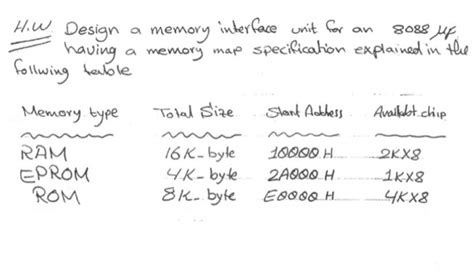 H.W Design a memory interface unit for an 8088 μp
having a memory map specification explained in the
follwing table
Memory type Total Size Start Address Availabt chip
RAM 16K-byte 10000H 2KX8
EPROM 4K-byte 2A000H 1KX8
ROM 8K-byte E0000H 4KX8